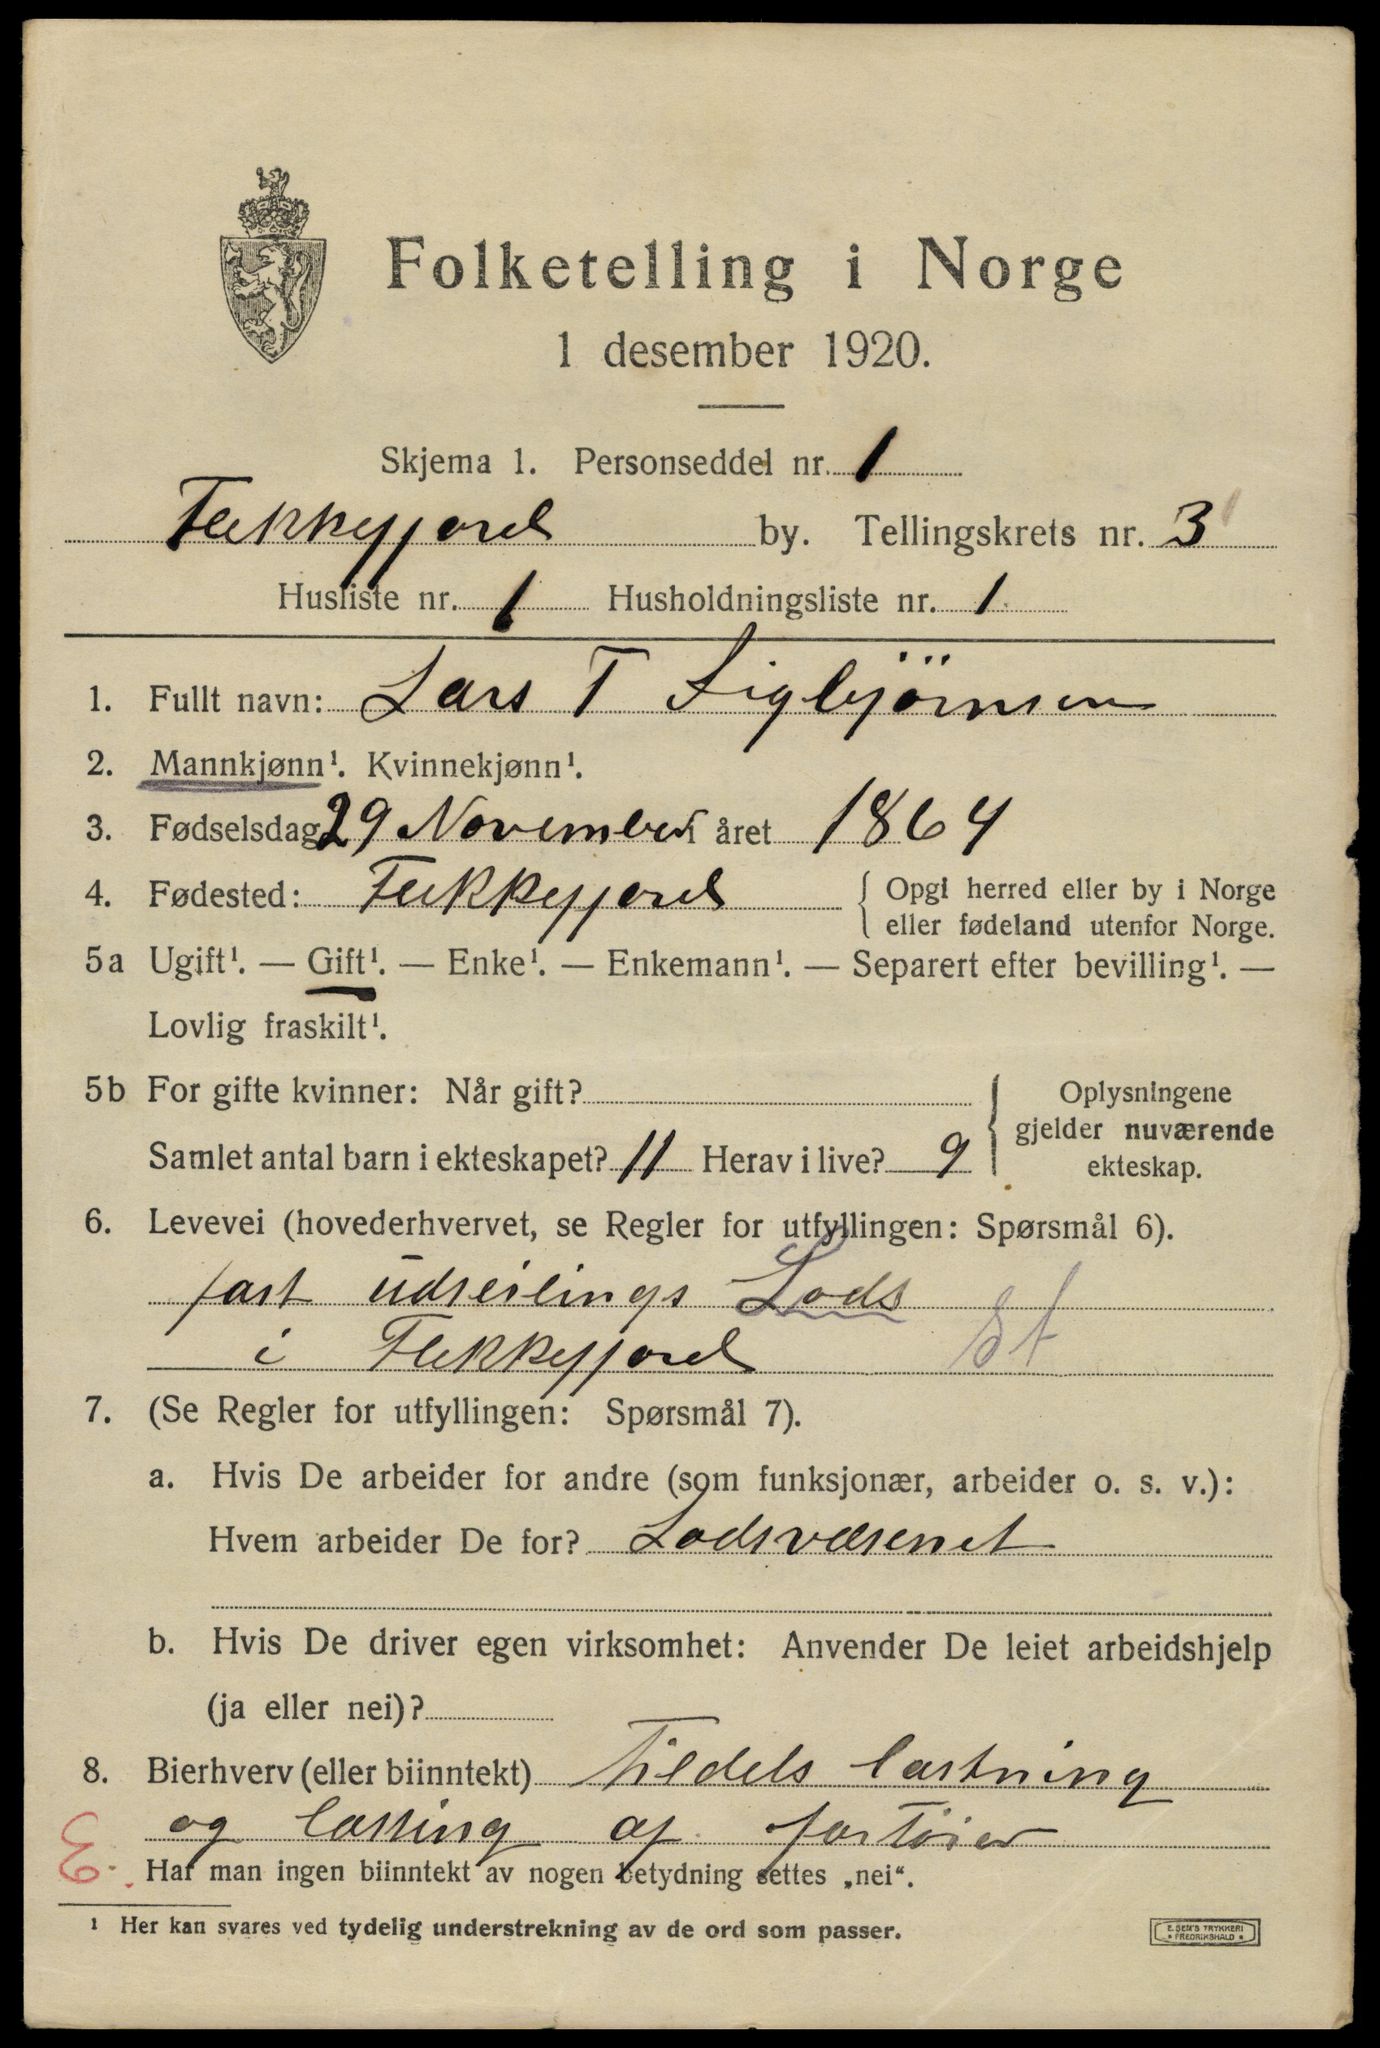 Folketelling i Norge
1 desember 1920.
Skjema 1. Personseddel nr. 1
Flekkefjord by. Tellingskrets nr. 3
Husliste nr. 1 Husholdningsliste nr. 1
1. Fullt navn: Lars T Sigbjörnsen
2. Mannkjønn¹. Kvinnekjønn¹.
3. Fødselsdag 29 November i året 1864
4. Fødested: Flekkefjord { Opgi herred eller by i Norge
eller fødeland utenfor Norge.
5a Ugift¹. — Gift¹. — Enke¹. — Enkemann¹. — Separert efter bevilling¹. —
Lovlig fraskilt¹.
5b For gifte kvinner: Når gift?
Samlet antal barn i ekteskapet? 11 Herav i live? 9
Oplysningene
gjelder nuværende
ekteskap.
6. Levevei (hovederhvervet, se Regler for utfyllingen: Spørsmål 6).
fast udseilings Lods
i Flekkefjord St
7. (Se Regler for utfyllingen: Spørsmål 7).
a. Hvis De arbeider for andre (som funksjonær, arbeider o. s. v.):
Hvem arbeider De for? Lodsvæsenet
b. Hvis De driver egen virksomhet: Anvender De leiet arbeidshjelp
(ja eller nei)?
8. Bierhverv (eller biinntekt) Tildels lastning
og lossing af fartöier
Har man ingen biinntekt av nogen betydning settes „nei“.
¹ Her kan svares ved tydelig understrekning av de ord som passer.
E. SEM'S TRYKKERI
* FREDRIKSHALD *